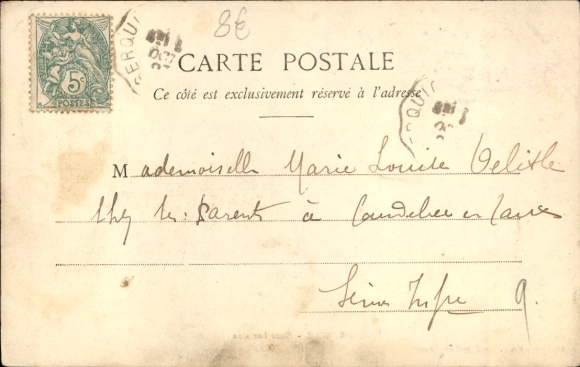 8€
5c
POSTES
CARTE POSTALE
Ce côté est exclusivement réservé à l'adresse
Mademoiselle Marie Louise Delisle
chez ses Parents à Caudebec en Caux
Seine Infre